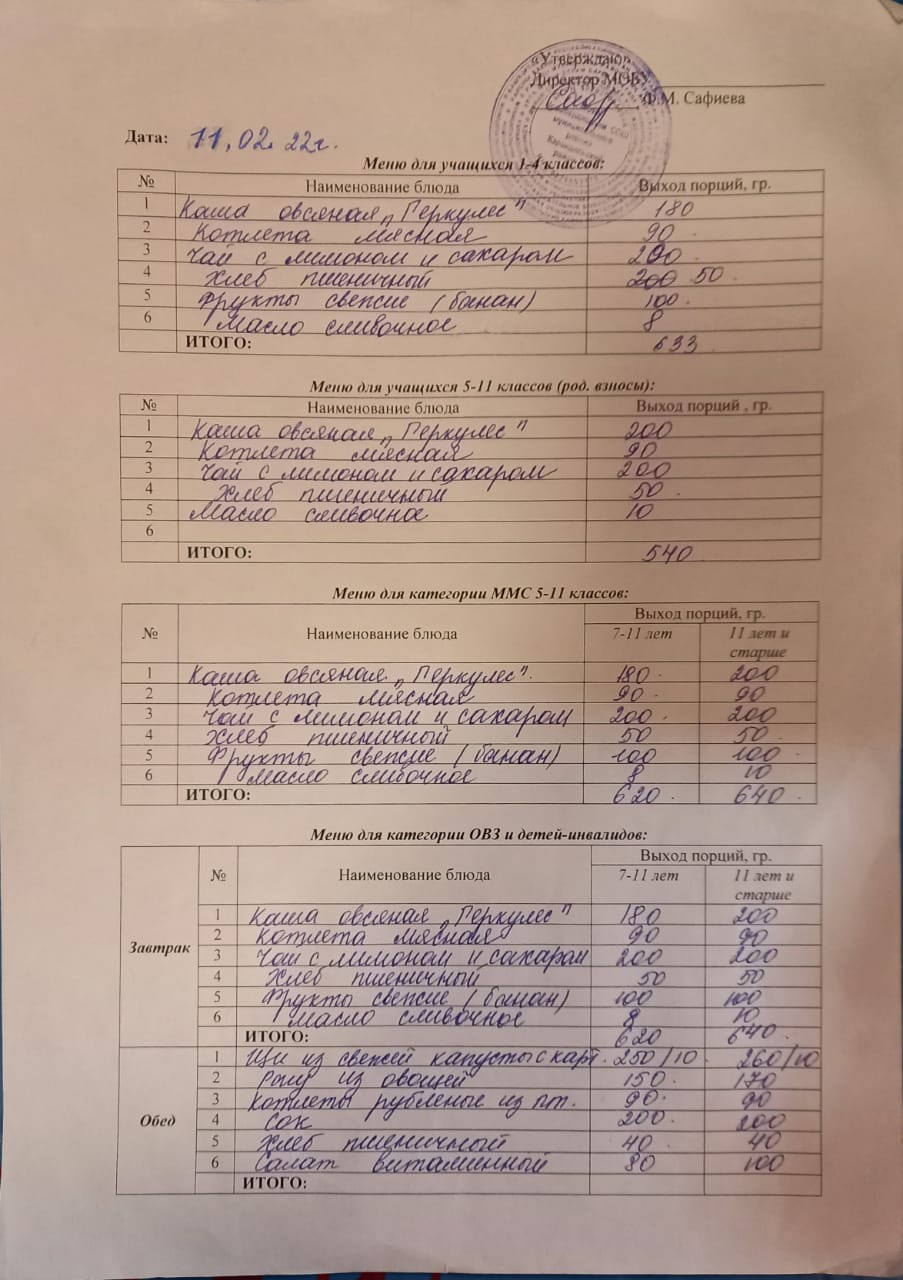 «Утверждаю»
Директор МОБУ
Ф.М. Сафиева
Дата: 11.02.22г.
Меню для учащихся 1-4 классов:
№ Наименование блюда Выход порций, гр.
1 Каша овсяная „Геркулес" 180
2 Котлета мясная 90
3 Чай с лимоном и сахаром 200
4 Хлеб пшеничный 200 50
5 Фрукты свежие (банан) 100
6 Масло сливочное 8
ИТОГО: 633
Меню для учащихся 5-11 классов (род. взносы):
№ Наименование блюда Выход порций , гр.
1 Каша овсяная „Геркулес" 200
2 Котлета мясная 90
3 Чай с лимоном и сахаром 200
4 Хлеб пшеничный 50
5 Масло сливочное 10
6
ИТОГО: 540
Меню для категории ММС 5-11 классов:
№ Наименование блюда Выход порций, гр.
7-11 лет 11 лет и старше
1 Каша овсяная „Геркулес" 180 200
2 Котлета мясная 90 90
3 Чай с лимоном и сахаром 200 200
4 Хлеб пшеничный 50 50
5 Фрукты свежие (банан) 100 100
6 Масло сливочное 8 10
ИТОГО: 620 640
Меню для категории ОВЗ и детей-инвалидов:
№ Наименование блюда Выход порций, гр.
7-11 лет 11 лет и старше
Завтрак
1 Каша овсяная „Геркулес" 180 200
2 Котлета мясная 90 90
3 Чай с лимоном и сахаром 200 200
4 Хлеб пшеничный 50 50
5 Фрукты свежие (банан) 100 100
6 Масло сливочное 8 10
ИТОГО: 620 640
Обед
1 Щи из свежей капусты с карт. 250/10 260/10
2 Рагу из овощей 150 170
3 Котлеты рубленые из пт. 90 90
4 Сок 200 200
5 Хлеб пшеничный 40 40
6 Салат витаминный 80 100
ИТОГО: